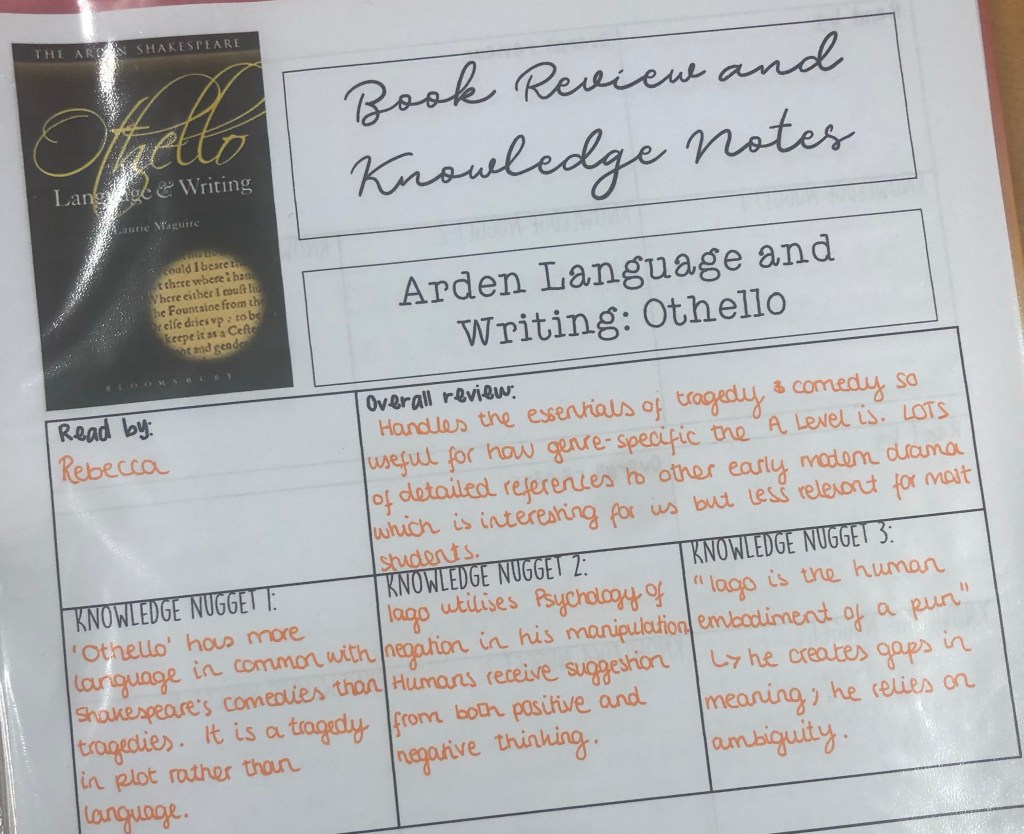 THE ARDEN SHAKESPEARE
Othello
Language & Writing
Laurie Maguire
could I beare
t there where i ha
Where either I must li
he Fountaine from the
r else dries vp : to be
keepe it as a Ceste
ot and gende
BLOOMSBURY
Book Review and
Knowledge Notes
Arden Language and
Writing: Othello
Read by:
Rebecca
Overall review:
Handles the essentials of tragedy & comedy so
useful for how genre-specific the A Level is. LOTS
of detailed references to other early modern drama
which is interesting for us but less relevant for most
students.
KNOWLEDGE NUGGET 1:
'Othello' has more
language in common with
Shakespeare's comedies than
tragedies. It is a tragedy
in plot rather than
language.
KNOWLEDGE NUGGET 2:
Iago utilises Psychology of
negation in his manipulation
Humans receive suggestion
from both positive and
negative thinking.
KNOWLEDGE NUGGET 3:
"Iago is the human
embodiment of a pun"
↳ he creates gaps in
meaning; he relies on
ambiguity.